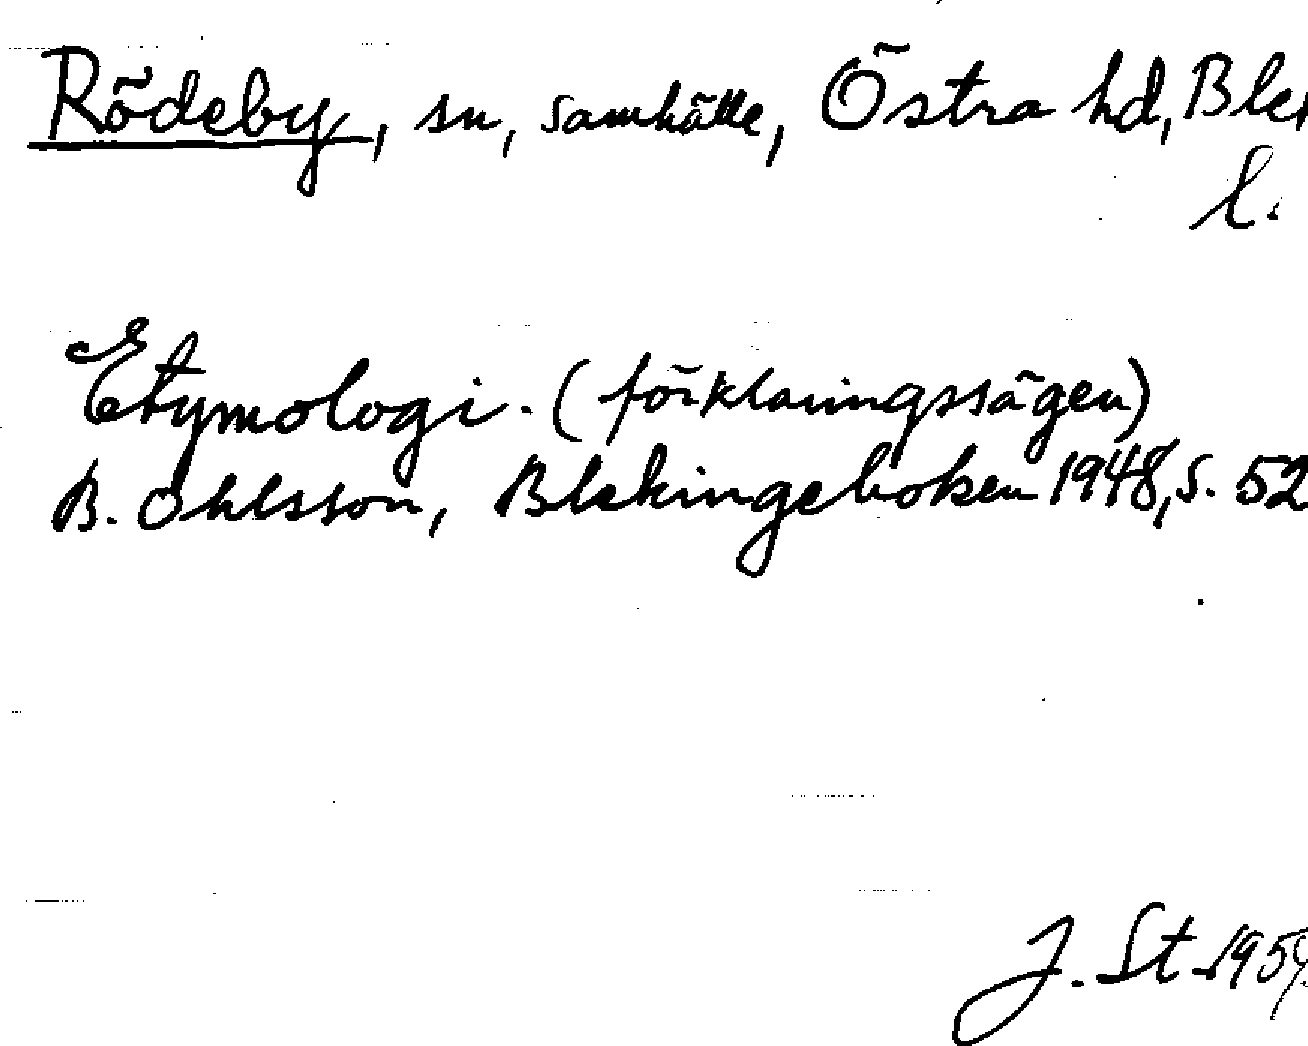 Rödeby, sn, samhälle, Östra hd, Blek
l.
Etymologi. (förklaringssägen)
B. Ohlsson, Blekingeboken 1948, s. 52
J. St 1959